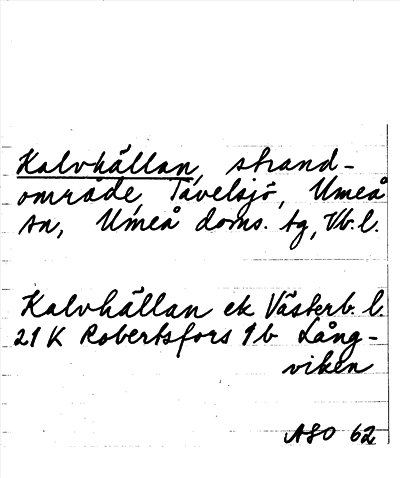 Kalvhällan, strand-
område, Tavelsjö, Umeå
sn, Umeå doms. tg, Vb. l.
Kalvhällan ek Västerb. l.
21 K Robertsfors 9b Lång-
viken
ASO 62